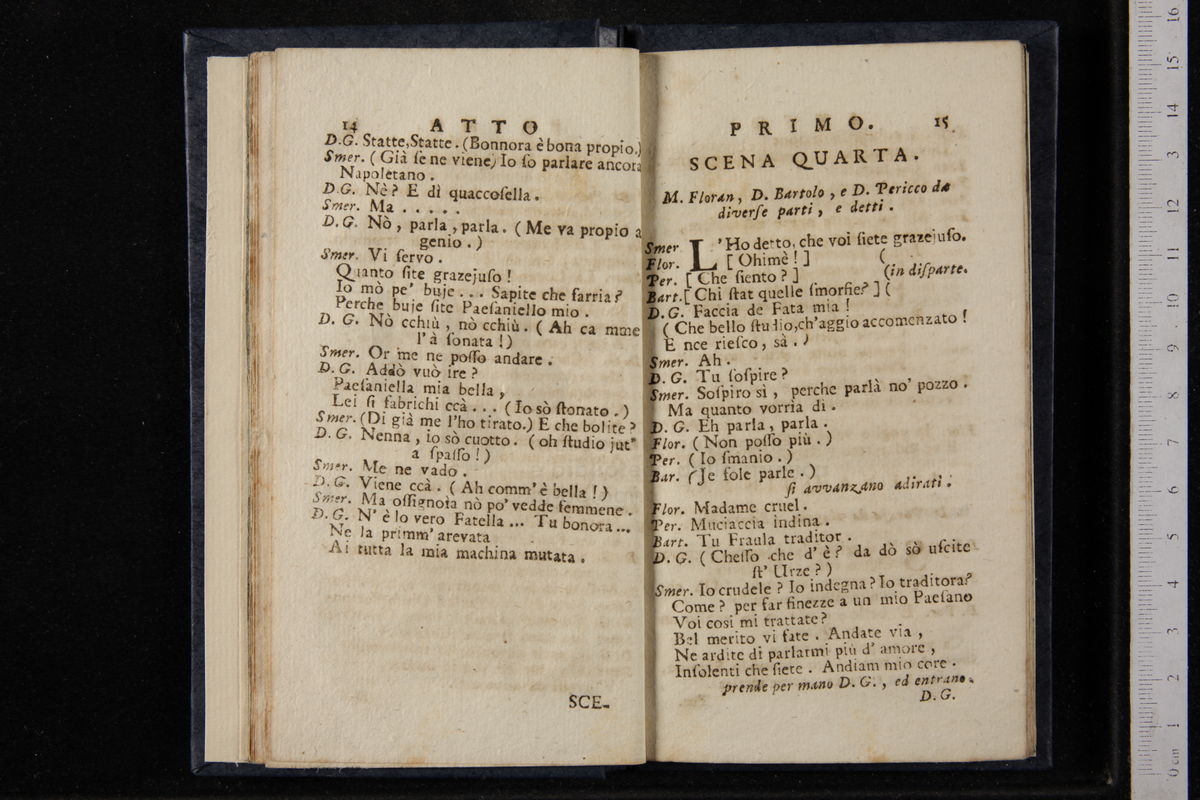 14 ATTO
D.G. Statte,Statte. (Bonnora è bona propio.)
Smer. (Già ſe ne viene) Io ſo parlare ancora
Napoletano.
D.G. Nè? E dì quaccoſella.
Smer. Ma . . . . .
D.G. Nò, parla, parla. (Me va propio a
genio.)
Smer. Vi ſervo.
Quanto ſite grazejuſo!
Io mò pe' buje... Sapite che farria?
Perche buje ſite Paeſaniello mio.
D. G. Nò cchiù, nò cchiù. (Ah ca mme
l'à ſonata!)
Smer. Or me ne poſſo andare.
D. G. Addò vuò ire?
Paeſaniella mia bella,
Lei ſi fabrichi ccà... (Io sò ſtonato.)
Smer. (Di già me l'ho tirato.) E che bolite?
D. G. Nenna, io sò cuotto. (oh ſtudio jut'
a ſpaſſo!)
Smer. Me ne vado.
D.G. Viene ccà. (Ah comm'è bella!)
Smer. Ma oſſignoia nò po' vedde femmene.
D. G. N' è lo vero Fatella... Tu bonora...
Ne la primm' arevata
Ai tutta la mia machina mutata.
SCE-
PRIMO. 15
SCENA QUARTA.
M. Floran, D. Bartolo, e D. Pericco da
diverſe parti, e detti.
Smer L'Ho detto, che voi ſiete grazejuſo.
Flor. [Ohimè!] (
Per. [Che ſiento?] (in diſparte.
Bart. [Chi ſtat quelle ſmorfie?] (
D. G. Faccia de Fata mia!
(Che bello ſtudio,ch'aggio accomenzato!
E nce rieſco, sà.)
Smer. Ah.
D. G. Tu ſoſpire?
Smer. Soſpiro sì, perche parlà no' pozzo.
Ma quanto vorria dì.
D. G. Eh parla, parla.
Flor. (Non poſſo più.)
Per. (Io ſmanio.)
Bar. (Je ſole parle.)
ſi avvanzano adirati.
Flor. Madame cruel.
Per. Muciaccia indina.
Bart. Tu Fraula traditor.
D. G. (Cheſſo che d'è? da dò sò uſcite
ſt' Urze?)
Smer. Io crudele? Io indegna? Io traditora?
Come? per far finezze a un mio Paeſano
Voi così mi trattate?
Bel merito vi fate. Andate via,
Ne ardite di parlarmi più d'amore,
Inſolenti che ſiete. Andiam mio core.
prende per mano D. G., ed entrano.
D. G.
0 cm 1 2 3 4 5 6 7 8 9 10 11 12 13 14 15 16